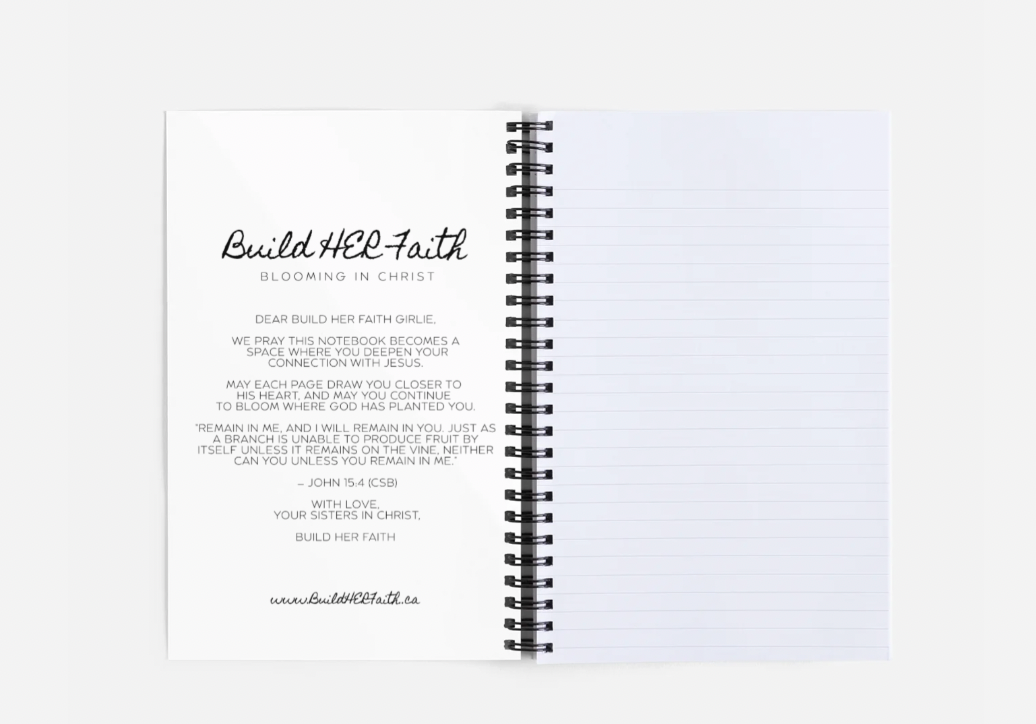 Build HER Faith
BLOOMING IN CHRIST
DEAR BUILD HER FAITH GIRLIE,
WE PRAY THIS NOTEBOOK BECOMES A
SPACE WHERE YOU DEEPEN YOUR
CONNECTION WITH JESUS.
MAY EACH PAGE DRAW YOU CLOSER TO
HIS HEART, AND MAY YOU CONTINUE
TO BLOOM WHERE GOD HAS PLANTED YOU.
"REMAIN IN ME, AND I WILL REMAIN IN YOU. JUST AS
A BRANCH IS UNABLE TO PRODUCE FRUIT BY
ITSELF UNLESS IT REMAINS ON THE VINE, NEITHER
CAN YOU UNLESS YOU REMAIN IN ME."
– JOHN 15:4 (CSB)
WITH LOVE,
YOUR SISTERS IN CHRIST,
BUILD HER FAITH
www.BuildHERFaith.ca